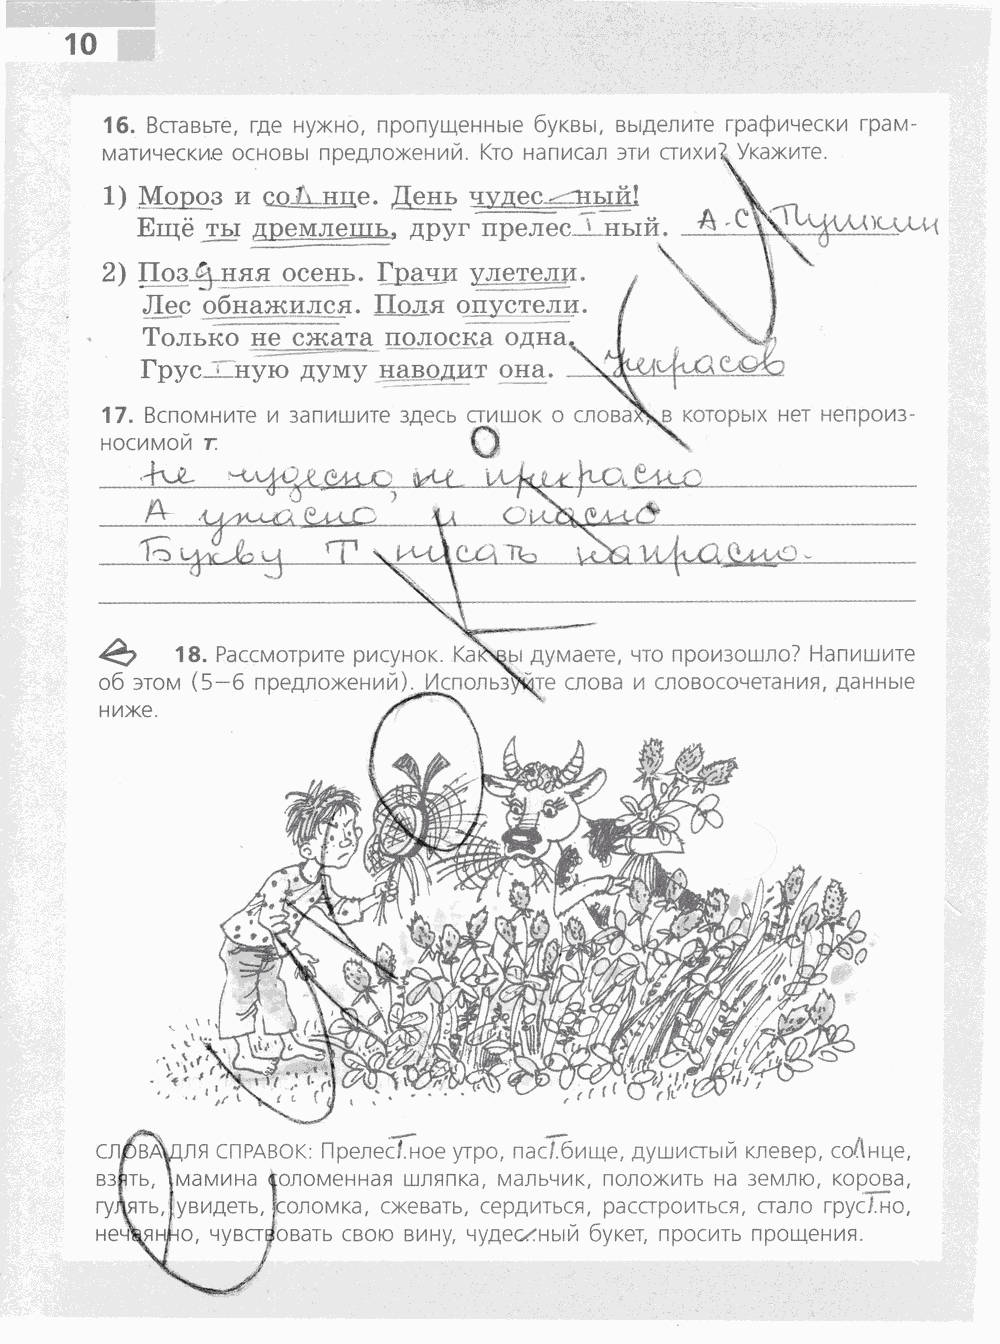 10
16. Вставьте, где нужно, пропущенные буквы, выделите графически грам-
матические основы предложений. Кто написал эти стихи? Укажите.
1) Мороз и солнце. День чудес ный!
Ещё ты дремлешь, друг прелестный. А.С. Пушкин
2) Поздняя осень. Грачи улетели.
Лес обнажился. Поля опустели.
Только не сжата полоска одна.
Грустную думу наводит она. Некрасов
17. Вспомните и запишите здесь стишок о словах, в которых нет непроиз-
носимой т.
Не чудесно, не прекрасно
А ужасно и опасно
Букву Т писать напрасно.
18. Рассмотрите рисунок. Как вы думаете, что произошло? Напишите
об этом (5—6 предложений). Используйте слова и словосочетания, данные
ниже.
СЛОВА ДЛЯ СПРАВОК: Прелестное утро, пастбище, душистый клевер, солнце,
взять, мамина соломенная шляпка, мальчик, положить на землю, корова,
гулять, увидеть, соломка, сжевать, сердиться, расстроиться, стало грустно,
нечаянно, чувствовать свою вину, чудес ный букет, просить прощения.